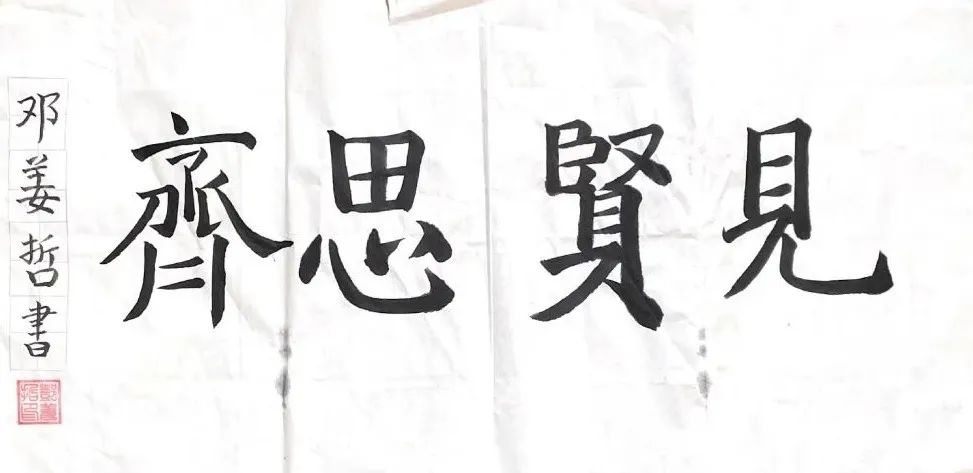 見賢思齊
邓姜哲書